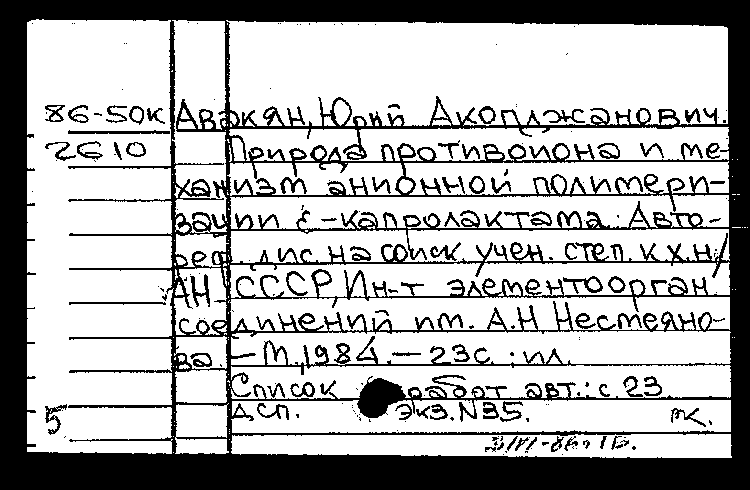 86-50к Авакян, Юрий Акопджанович.
2610 Природа противоиона и ме-
ханизм анионной полимери-
зации ε-капролактама: Авто-
реф. дис. на соиск. учен. степ. к.х.н/
АН СССР, Ин-т элементоорган.
соединений им. А.Н. Несмеяно-
ва. – М., 1984. – 23с.: ил.
Список работ авт.: с. 23.
5 дсп. экз. N35.